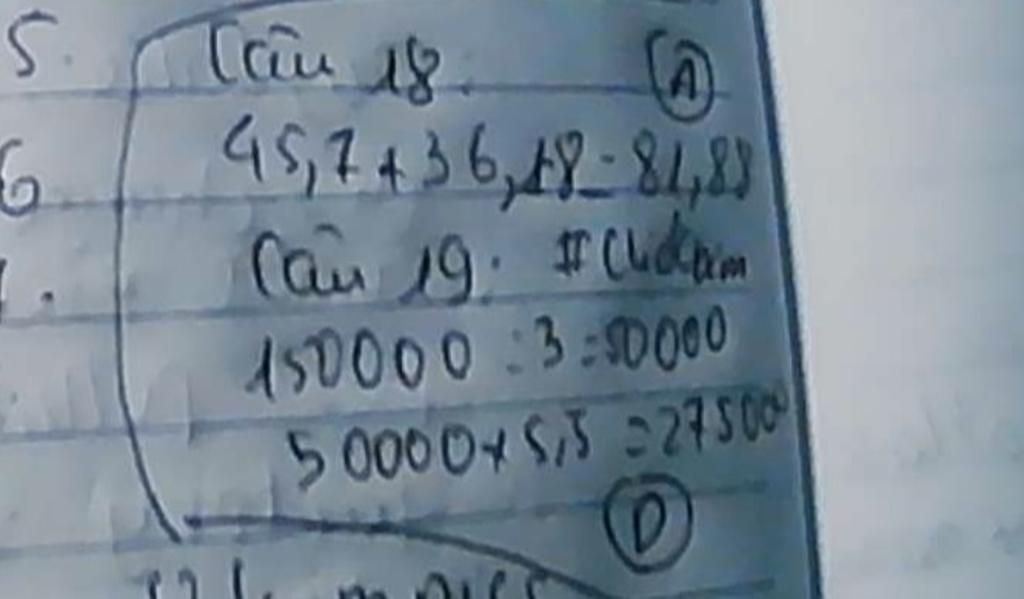 5.
Câu 18. A
45,7 + 36,18 = 81,88
6
Câu 19.
150000 : 3 = 50000
50000 x 5,5 = 275000
D